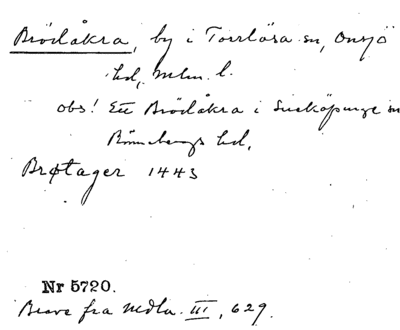 Brödåkra, by i Torrlösa sn, Onsjö
hd, Mlm. l.
obs! Ett Brödåkra i Svalöv sn
Rönnebergs hd.
Brøtager 1443
Nr 5720.
Breve fra Mdla. III, 629.